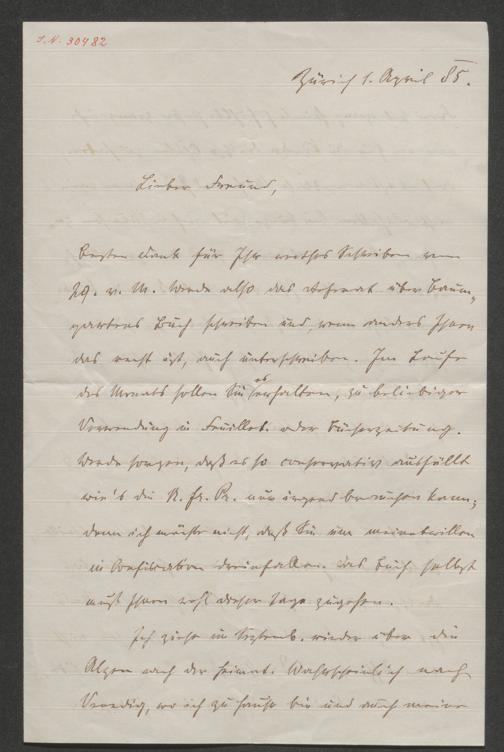 I.N. 30482
Zürich 1. April 85.
Lieber Freund,
Besten Dank für Ihr werthes Schreiben vom
29. v. M. Werde also das Referat über Baum-
gartens Buch schreiben und, wenn anders Ihnen
das recht ist, auch unterschreiben. Im Laufe
des Monats sollen Sie es erhalten, zu beliebiger
Verwendung in Feuillet. oder Bücherzeitung.
Werde sorgen, daß es so conservativ ausfällt
wie's die N. fr. Pr. nur irgend brauchen kann;
denn ich möchte nicht, daß Sie um meinetwillen
in Confiscation hereinfallen. Das Buch selbst
muß Ihnen dieser Tage zugehen.
Ich ziehe im Septemb. wieder über die
Alpen nach der Heimat. Wahrscheinlich nach
Venedig, wo ich zu Hause bin und auch meine